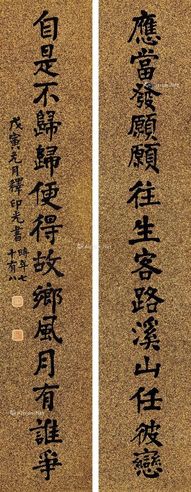 應當發願願往生客路溪山任彼戀
自是不歸歸便得故鄉風月有誰爭
戊寅元月釋印光書
時年七
十有八